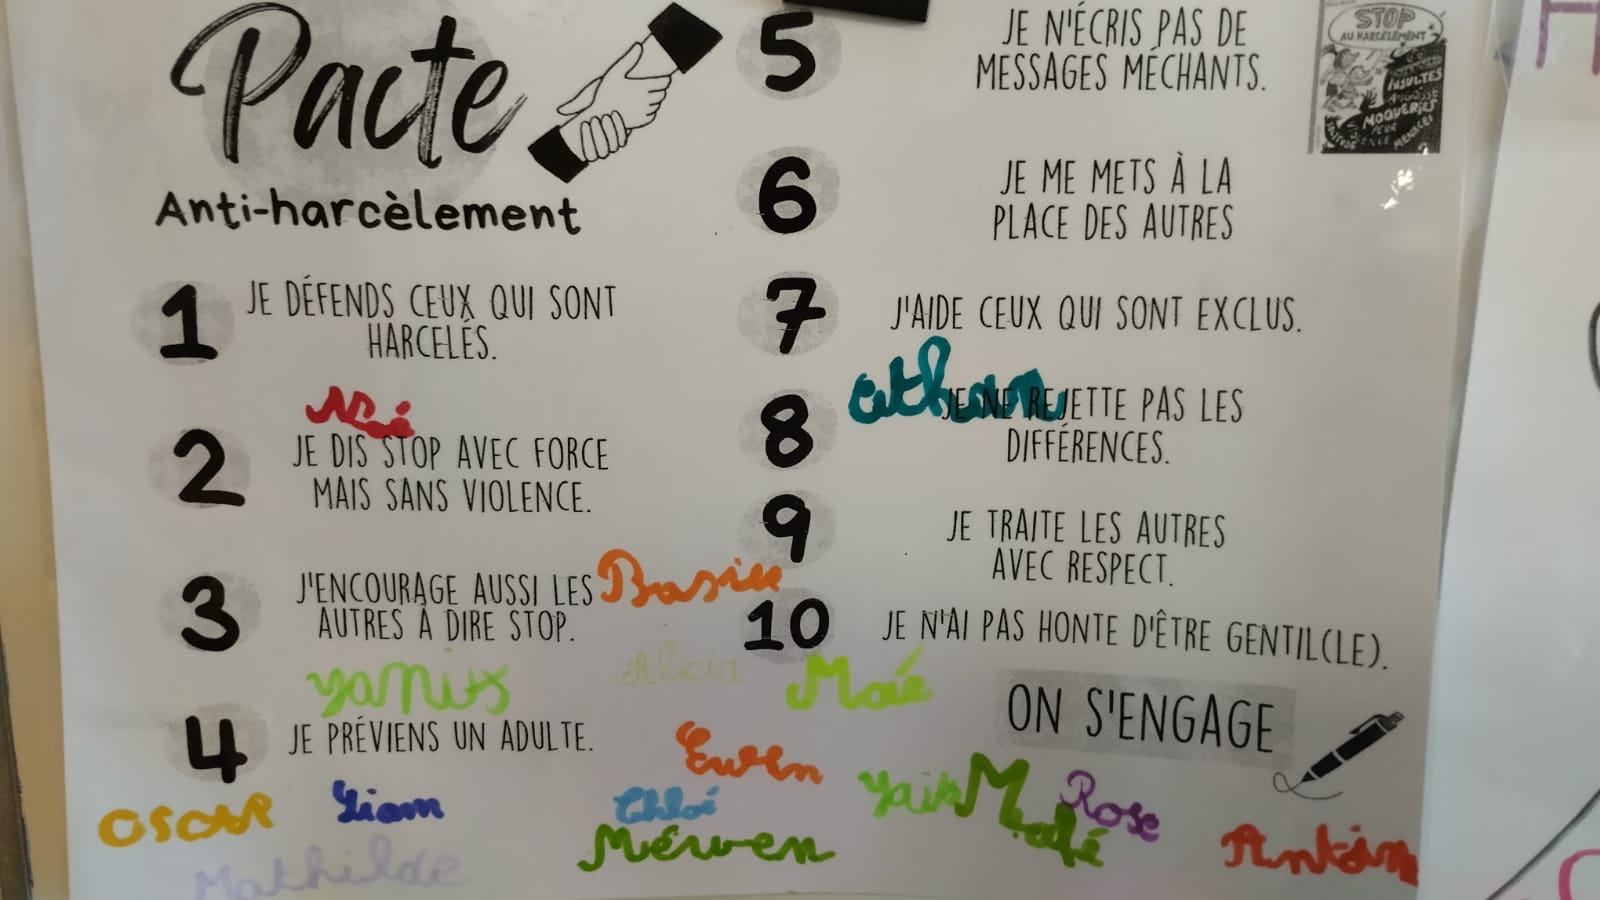 Pacte
Anti-harcèlement
1
JE DÉFENDS CEUX QUI SONT
HARCELÉS.
2
JE DIS STOP AVEC FORCE
MAIS SANS VIOLENCE.
3
J'ENCOURAGE AUSSI LES
AUTRES À DIRE STOP.
Yanis
4
JE PRÉVIENS UN ADULTE.
Oscar
Liam
Mathilde
5
JE N'ÉCRIS PAS DE
MESSAGES MÉCHANTS.
STOP
AU HARCÈLEMENT
INSULTES
ANGOISSE
MOQUERIES
PEUR
MENACES
6
JE ME METS À LA
PLACE DES AUTRES
7
J'AIDE CEUX QUI SONT EXCLUS.
8
JE NE REJETTE PAS LES
DIFFÉRENCES.
9
JE TRAITE LES AUTRES
AVEC RESPECT.
10
JE N'AI PAS HONTE D'ÊTRE GENTIL(LE).
Alicia
ON S'ENGAGE
Chloé
Rose